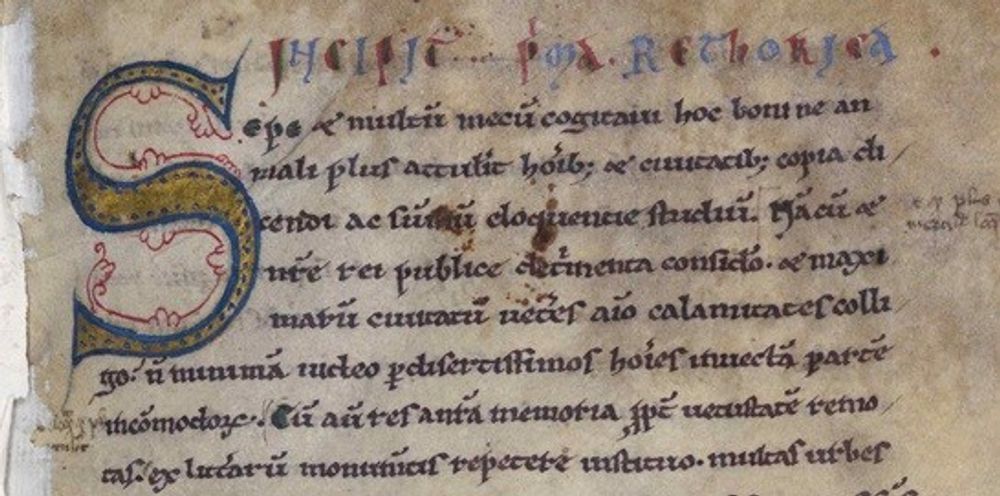 INCIPIT P'MA. RETHORICA .
Sepe & multū mecū cogitaui hoc boni ne an
mali plus attulit hoīb; & ciuitatib; copia di
cendi ac sūmū eloquencie studiū. Nā cū &
nr̄e rei publice det'menta consid'o. & maxi
marū ciuitatū uet'es aīo calamitates colli
go. ñ minimā uideo p̱disertissimos hoīes inuectā partē
incōmodoꝝ. Cū aū res a nr̄a memoria ꝓpt' uetustatē remo
tas. ex litt'arū monum̄tis repetere instituo. multas urbes